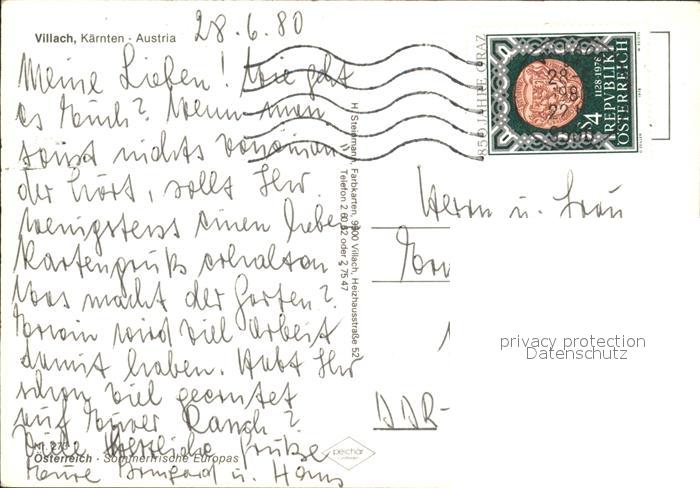 Villach, Kärnten · Austria
28.6.80
Meine Lieben! Wie geht
es Euch? Wenn man
sonst nichts voneinan-
der hört, sollt Ihr
wenigstens einen lieben
Kartengruß erhalten
Was macht der Garten?
Erwin wird viel Arbeit
damit haben. Habt Ihr
schon viel geerntet
auf Eurer Ranch?
Viele herzliche Grüße
Eure Irmgard u. Hans
Österreich · Sommerfrische Europas
H. Steinmann, Farbkarten, 9500 Villach, Heizhausstraße 52
Telefon 2 60 82 oder 2 75 47
pechar
850 JAHRE GRAZ
1128-1978
S 4
REPUBLIK
ÖSTERREICH
Herrn u. Frau
Erw
DDR-
privacy protection
Datenschutz